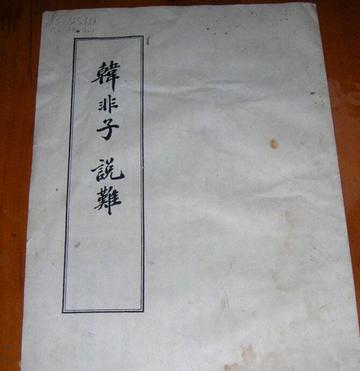 韓非子 說難